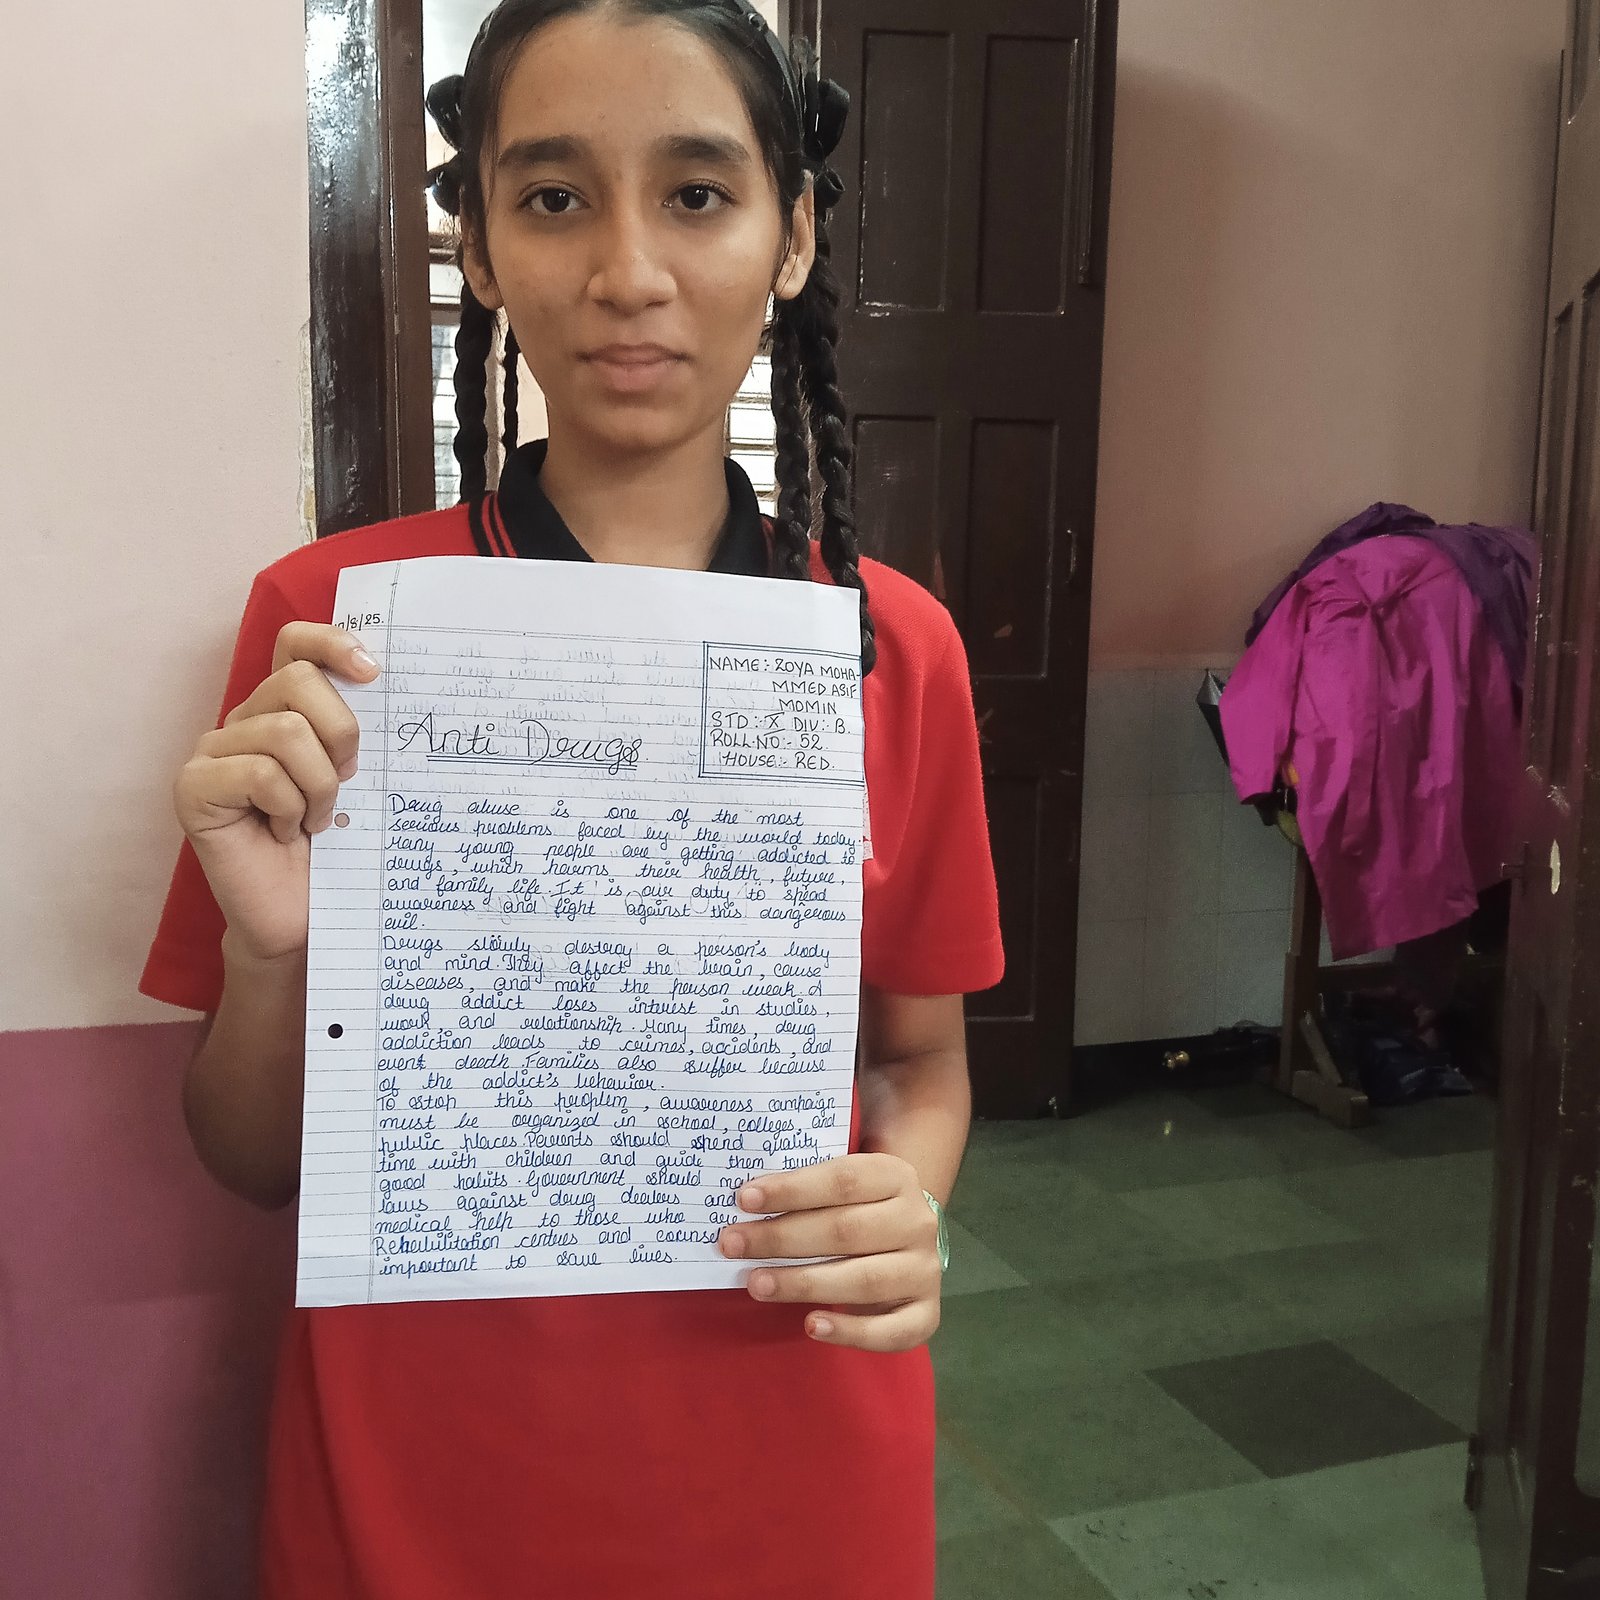 /8/25.
NAME:- ZOYA MOHA-
MMED ASIF
MOMIN
STD:- X DIV:- B.
ROLL.NO:- 52.
HOUSE:- RED.
Anti Drugs.
Drug abuse is one of the most
serious problems faced by the world today.
Many young people are getting addicted to
drugs, which harms their health, future,
and family life. It is our duty to spread
awareness and fight against this dangerous
evil.
Drugs slowly destroy a person's body
and mind. They affect the brain, cause
diseases, and make the person weak. A
drug addict loses interest in studies,
work, and relationship. Many times, drug
addiction leads to crimes, accidents, and
event death. Families also suffer because
of the addict's behavior.
To stop this problem, awareness campaign
must be organized in school, colleges, and
public places. Parents should spend quality
time with children and guide them
good habits. Government should
laws against drug dealers and
medical help to those who are
Rehabilitation centres and
important to save lives.